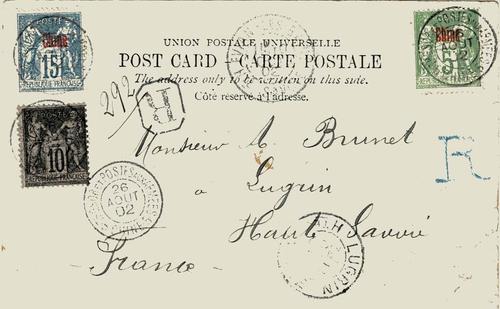 Chine
15
REPUBLIQUE FRANCAISE
Chine
5
UNION POSTALE UNIVERSELLE
POST CARD - CARTE POSTALE
The address only to be written on this side.
Côté réservé à l'adresse.
292
R
10
REPUBLIQUE FRANCAISE
Monsieur A. Brunet
R
à Lugrin
26
AOUT
02
Haute Savoie
France
LUGRIN